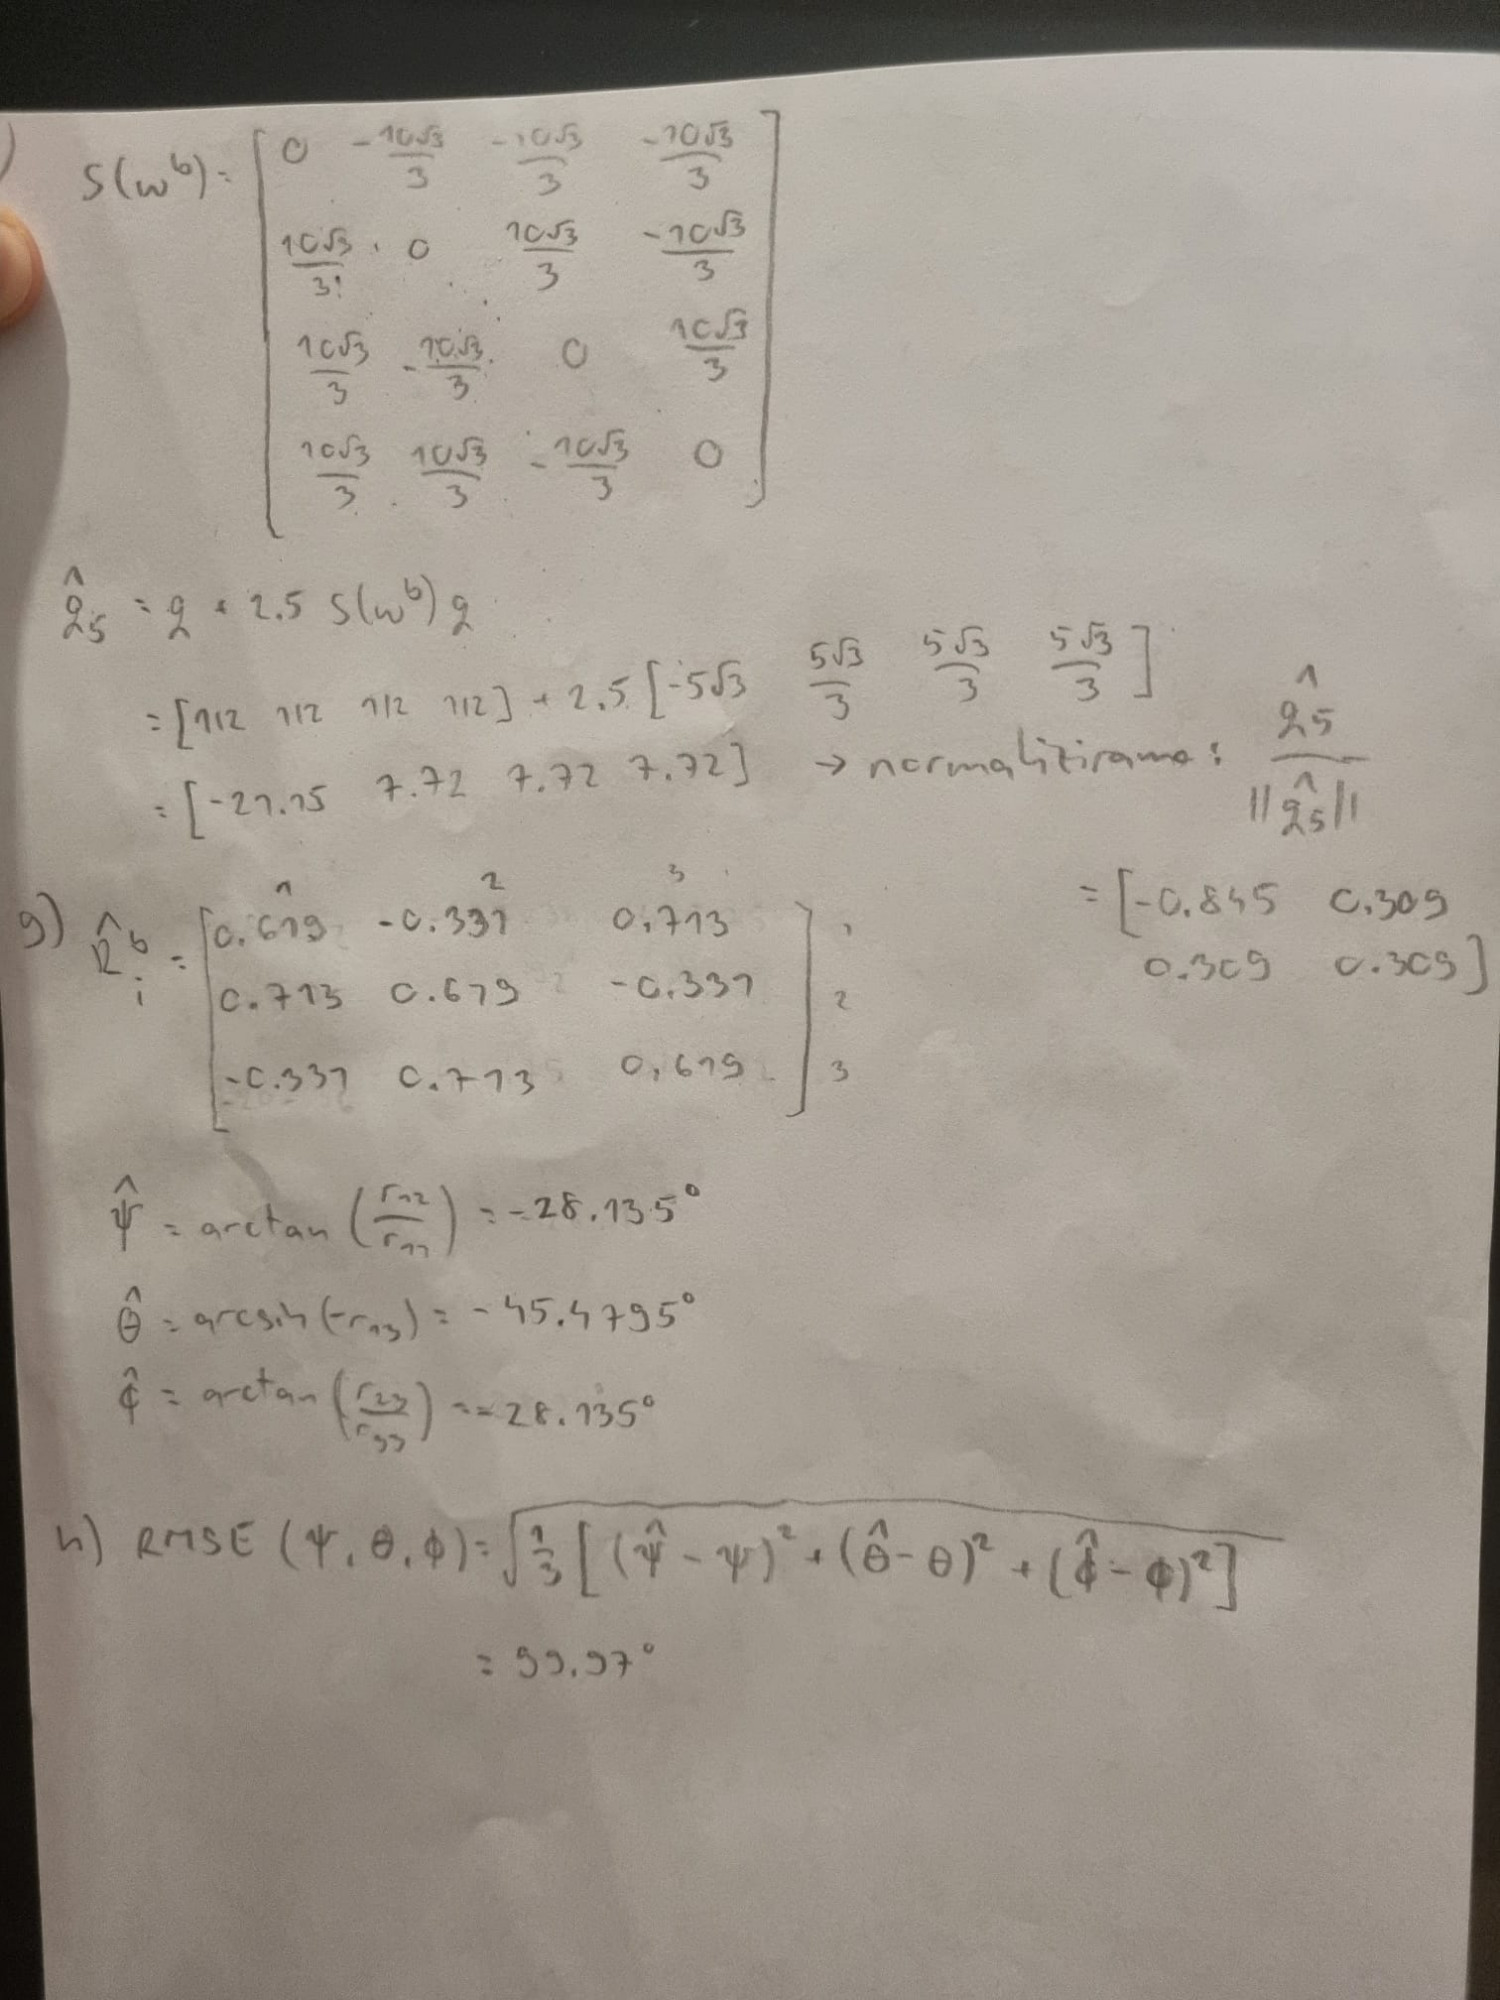 )
S(ω^b) = [ 0  -10√3/3  -10√3/3  -10√3/3
10√3/3  0  10√3/3  -10√3/3
10√3/3  -10√3/3  0  10√3/3
10√3/3  10√3/3  -10√3/3  0 ]
q̂₅ = q + 2.5 S(ω^b) q
= [1/2 1/2 1/2 1/2] + 2.5 [-5√3  5√3/3  5√3/3  5√3/3]
= [-21.15 7.72 7.72 7.72] → normaliziramo: q̂₅/||q̂₅||
= [-0.845 0.309
0.309 0.309]
1 2 3
g) R̂ᵢ^b = [ 0.619 -0.331 0.713 1
0.713 0.619 -0.331 2
-0.331 0.713 0.619 ] 3
ψ̂ = arctan (r₁₂/r₁₁) = -28.135°
θ̂ = arcsin(-r₁₃) = -45.4795°
φ̂ = arctan (r₂₃/r₃₃) = -28.135°
h) RMSE (ψ, θ, φ) = √(1/3 [(ψ̂ - ψ)² + (θ̂ - θ)² + (φ̂ - φ)²])
= 99.97°